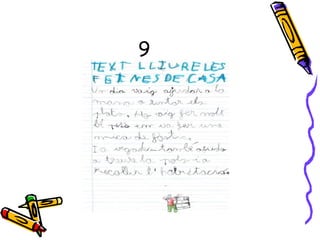 9
TEXT LLIURE LES
FEINES DE CASA
Un dia vaig ajudar a la
mama a rentar els
plats. Ho vaig fer molt
bé però em va fer una
mica de fàstic.
Jo vegades també
a treure la pols i a
recollir l'habitació.